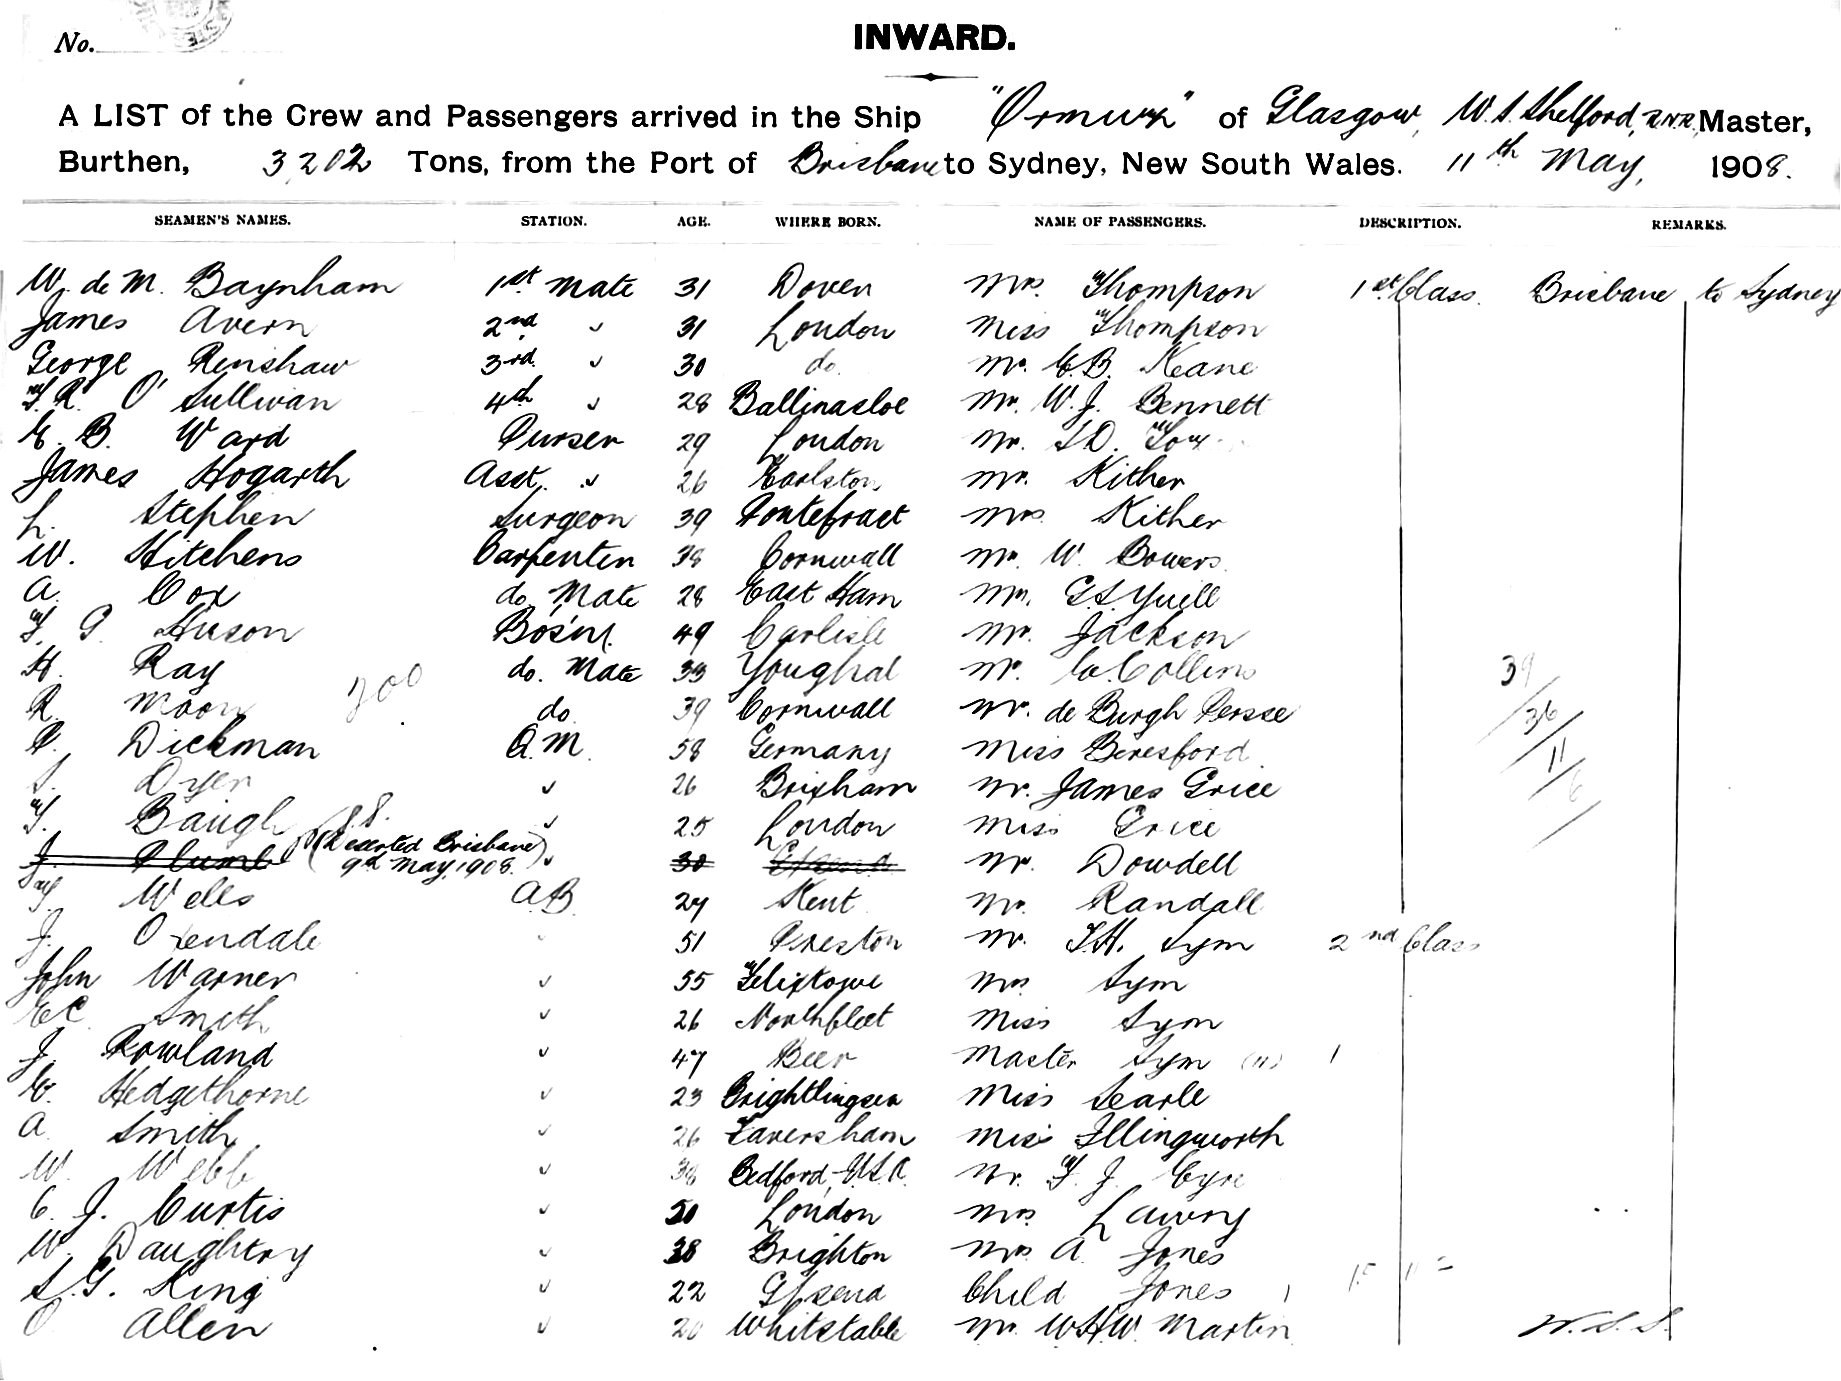 No.
INWARD.
A LIST of the Crew and Passengers arrived in the Ship "Ormuz" of Glasgow, W. S. Shelford, R.N.R. Master,
Burthen, 3,202 Tons, from the Port of Brisbane to Sydney, New South Wales. 11th May, 1908.
SEAMEN'S NAMES. STATION. AGE. WHERE BORN. NAME OF PASSENGERS. DESCRIPTION. REMARKS.
W. de M. Baynham 1st Mate 31 Dover Mrs. Thompson 1st Class. Brisbane to Sydney
James Avern 2nd " 31 London Miss Thompson
George Renshaw 3rd. " 30 do. Mr. E.B. Keane
F.R. O'Sullivan 4th " 28 Ballinasloe Mr. W.J. Bennett
E. B. Ward Purser 29 London Mr.
James Hogarth Asst. " 26 Earlston Mr. Kither
L. Stephen Surgeon 39 Pontefract Mrs Kither
W. Hitchens Carpenter 38 Cornwall Mr. W. Bowers
A. Cox do. Mate 28 East Ham Mr. G.S. Yuill
F. G. Huson Bos'n. 49 Carlisle Mr. Jackson
H. Ray do. Mate 33 Youghal Mr. W. Collins 39
R. Moon 200 do 39 Cornwall Mr. de Burgh Persse 36
P. Dickman Q.M. 58 Germany Miss Beresford 11
S. Dyer " 26 Brixham Mr. James Grice 6
F. Baugh " 25 London Miss Grice
J. Plumb (Deserted Brisbane 9th May, 1908.) " 30 Mr. Dowdell
F. Wells A.B. 24 Kent Mr. Randall
J. Oxendale 51 Preston Mr. T.H. Sym 2nd Class
John Warner " 55 Felixtowe Mrs Sym
E C Smith " 26 Northfleet Miss Sym
J. Rowland " 47 Beer Master Sym (11) 1
E. Hedgethorne " 23 Brightlingsea Miss Searle
A. Smith " 26 Faversham Miss Illingworth
W. Webb " 38 Bedford, U.S.A. Mr. F. J. Eyre
C. J. Curtis " 50 London Mrs Lawry
W. Daughtry " 38 Brighton Mrs A. Jones
S.G. King " 22 G'send Child Jones 1
O Allen " 20 Whitstable Mr. W.H.W. Martin W.S.S.